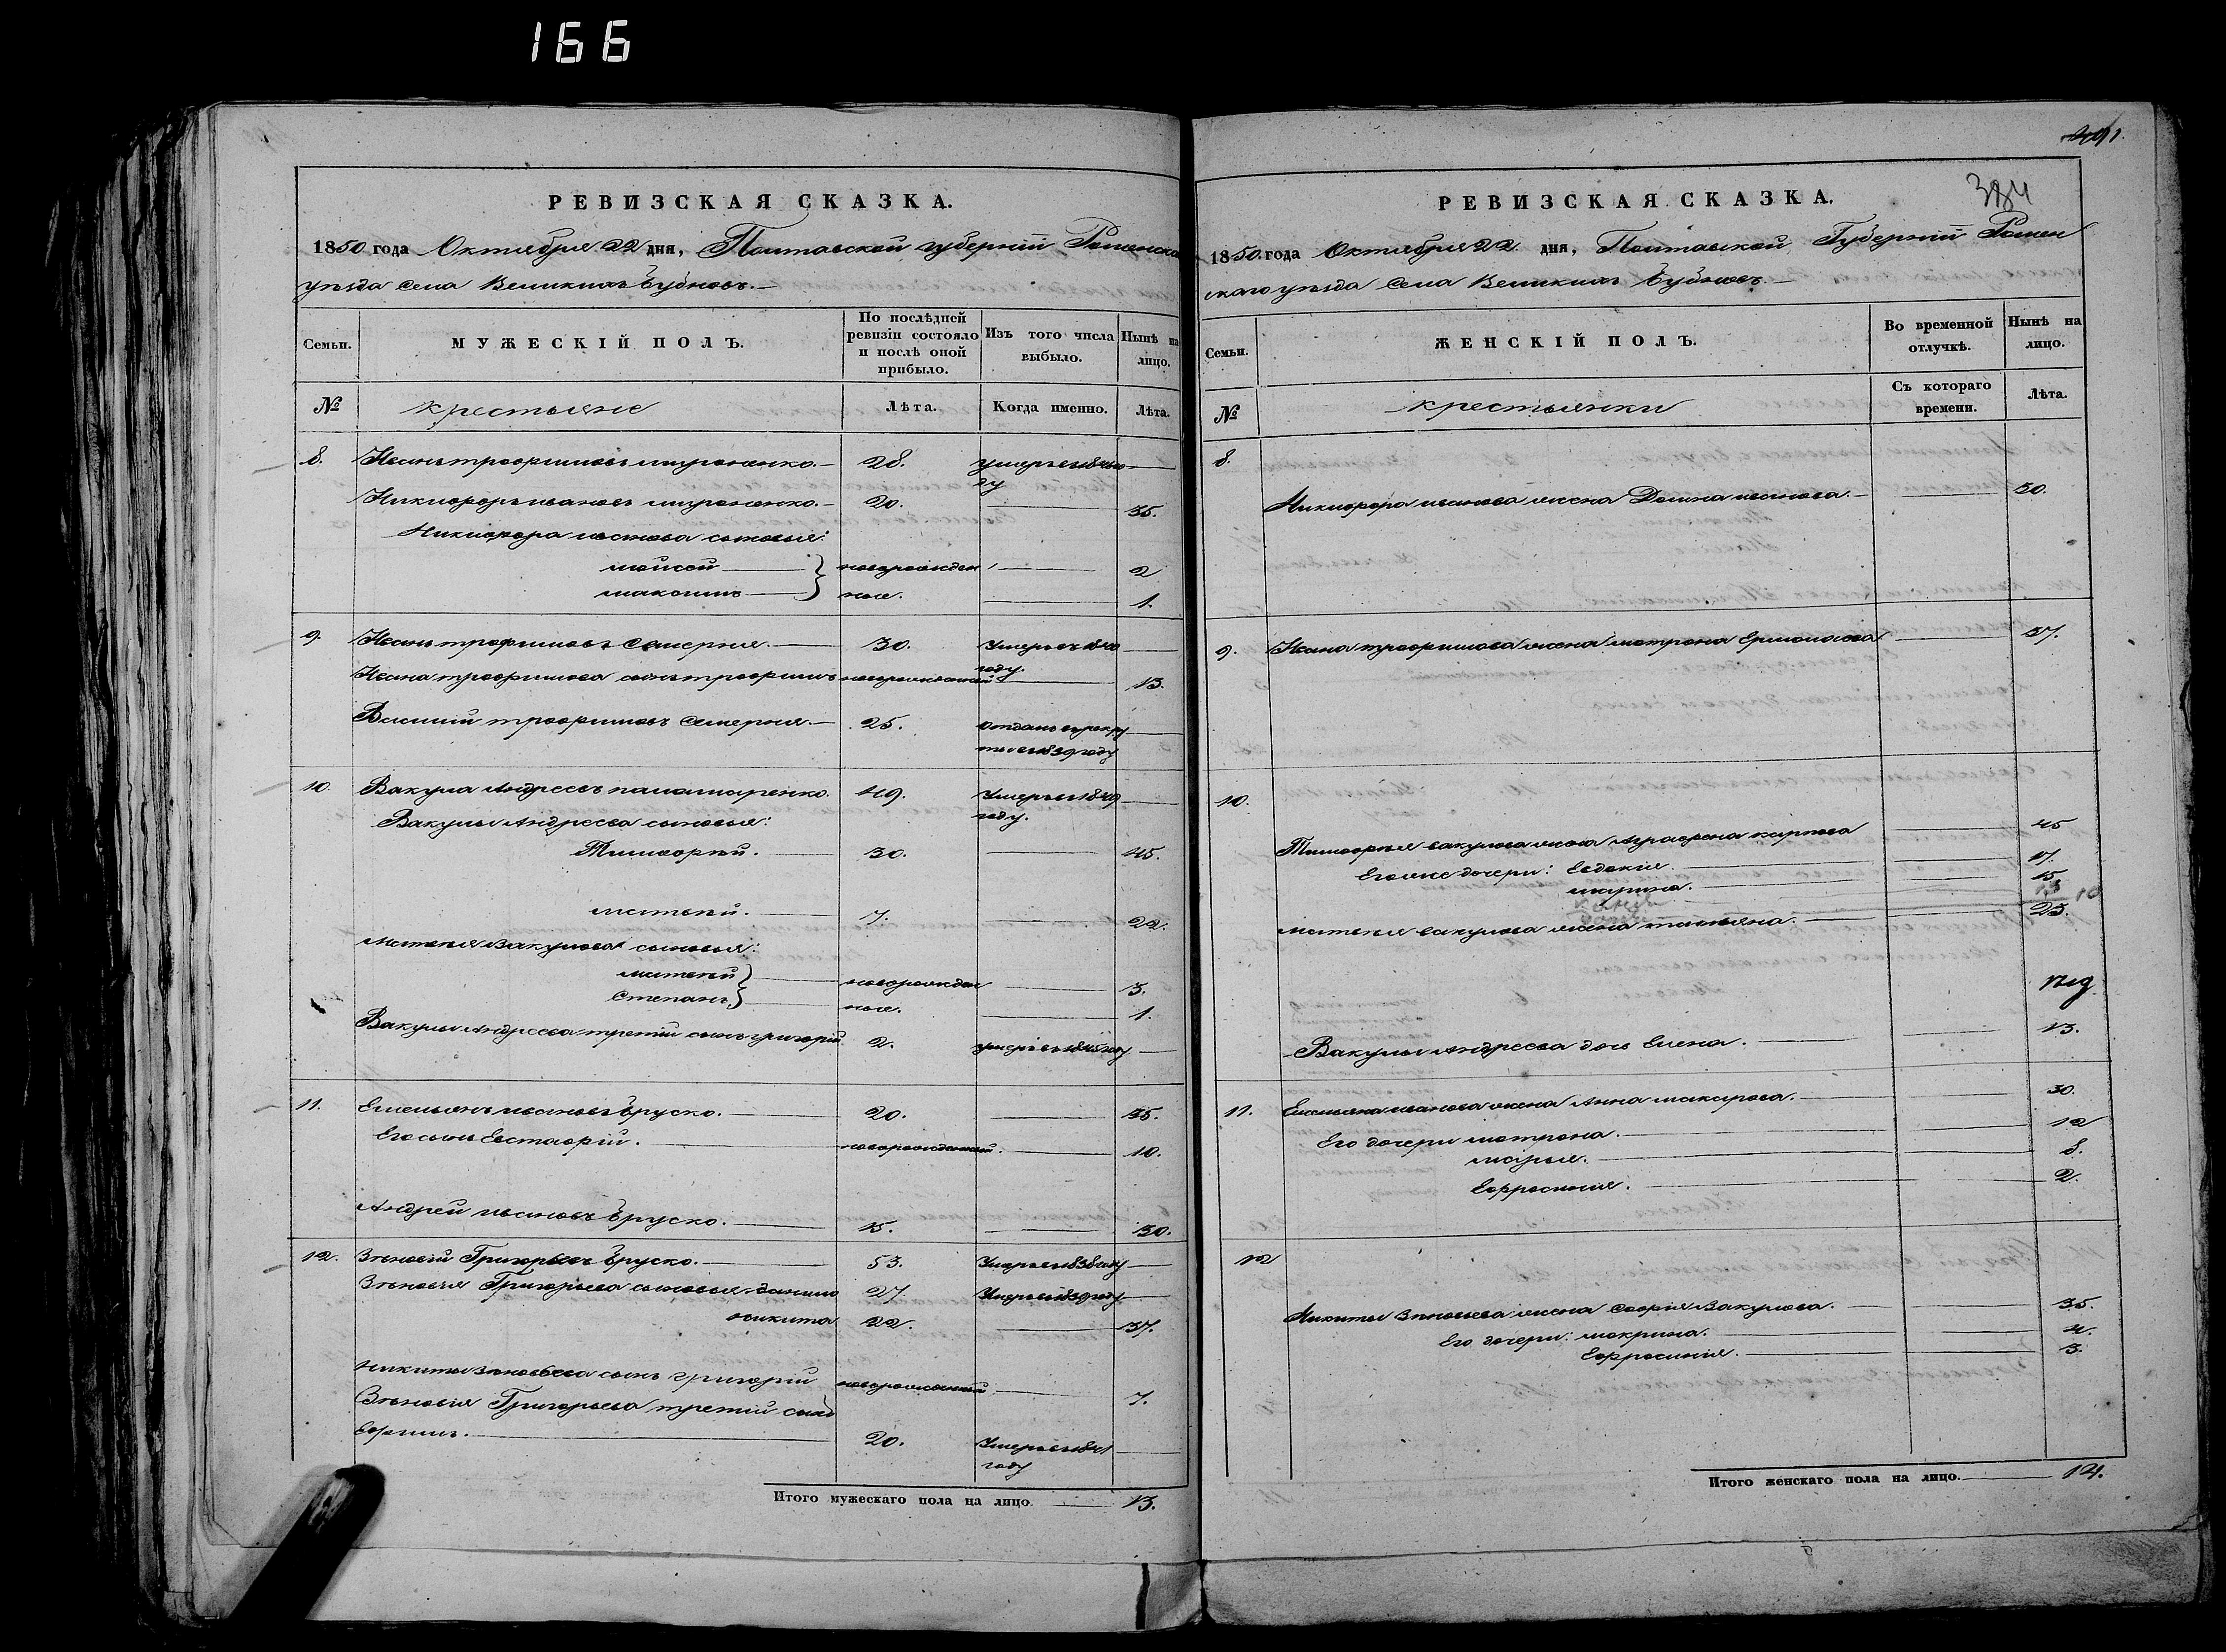 166
РЕВИЗСКАЯ СКАЗКА.
1850 года Октября 22 дня, Полтавской губерніи Роменска
уѣзда села Великихъ Бубновъ.
Семьи.
МУЖЕСКІЙ ПОЛЪ.
По послѣдней ревизіи состояло и послѣ оной прибыло.
Изъ того числа выбыло.
Нынѣ на лицо.
№
крестьяне
Лѣта.
Когда именно.
Лѣта.
8. Иванъ трофимовъ мироненко. 28. умеръ въ го
ду
Никифоръ ивановъ мироненко. 20. 35.
Никифора иванова сыновья:
моисей новорожден 2
максимъ ные. 1.
9. Иванъ трофимовъ 30. Умеръ въ 1840
году.
Ивана трофимова сынъ трофимъ новорожденный 13.
Василій трофимовъ 25. Отданъ въ рекру
ты въ 1839 году
10. Вакула Андреевъ паламаренко. 49. Умеръ въ 1849
году.
Вакулы Андреева сыновья:
Тимофѣй. 30. 45.
матвѣй. 7. 22.
Матвѣя Вакулова сыновья:
матвѣй новорожден 3.
Степанъ ные. 1.
Вакулы Андреева третій сынъ григорій 2. умеръ въ 1845 году
11. Емельянъ ивановъ Бруско. 20. 35.
Его сынъ Евстафій. новорожденный. 10.
Андрей ивановъ Бруско. 15. 30.
12. Зѣновій Григорьевъ Бруско. 53. Умеръ въ 1838 году
Зѣновія Григорьева сыновья данило 27. Умеръ въ 1839 году
никита 22. 37.
никиты Зѣновьева сынъ григорій новорожденный 7.
Зѣновія Григорьева третій сынъ
Ефимъ. 20. Умеръ въ 1841
году
Итого мужескаго пола на лицо. 13.
384
РЕВИЗСКАЯ СКАЗКА.
1850 года Октября 22 дня, Полтавской Губерніи Ромен
скаго уѣзда села Великихъ Бубновъ.
Семьи.
ЖЕНСКІЙ ПОЛЪ.
Во временной отлучкѣ.
Нынѣ на лицо.
№
крестьянки
Съ котораго времени.
Лѣта.
8.
Никифора иванова жена Домна иванова. 30.
9. Ивана трофимова жена матрона Ермолаева 37.
10.
Тимофѣя вакулова жена Аграфена карпова 45
Его же дочери: Евдокія 17.
марина. 15
матвѣя вакулова жена татьяна. 23.
Вакулы Андреева дочь Елена. 13.
11. Емельяна иванова жена Анна макарова. 30.
Его дочери матрона. 12
марья. 8.
Ефросинія. 2.
12
Никиты Зѣновьева жена Софія Вакулова. 35.
Его дочери: макрина. 4.
Ефросинія. 3.
Итого женскаго пола на лицо. 14.